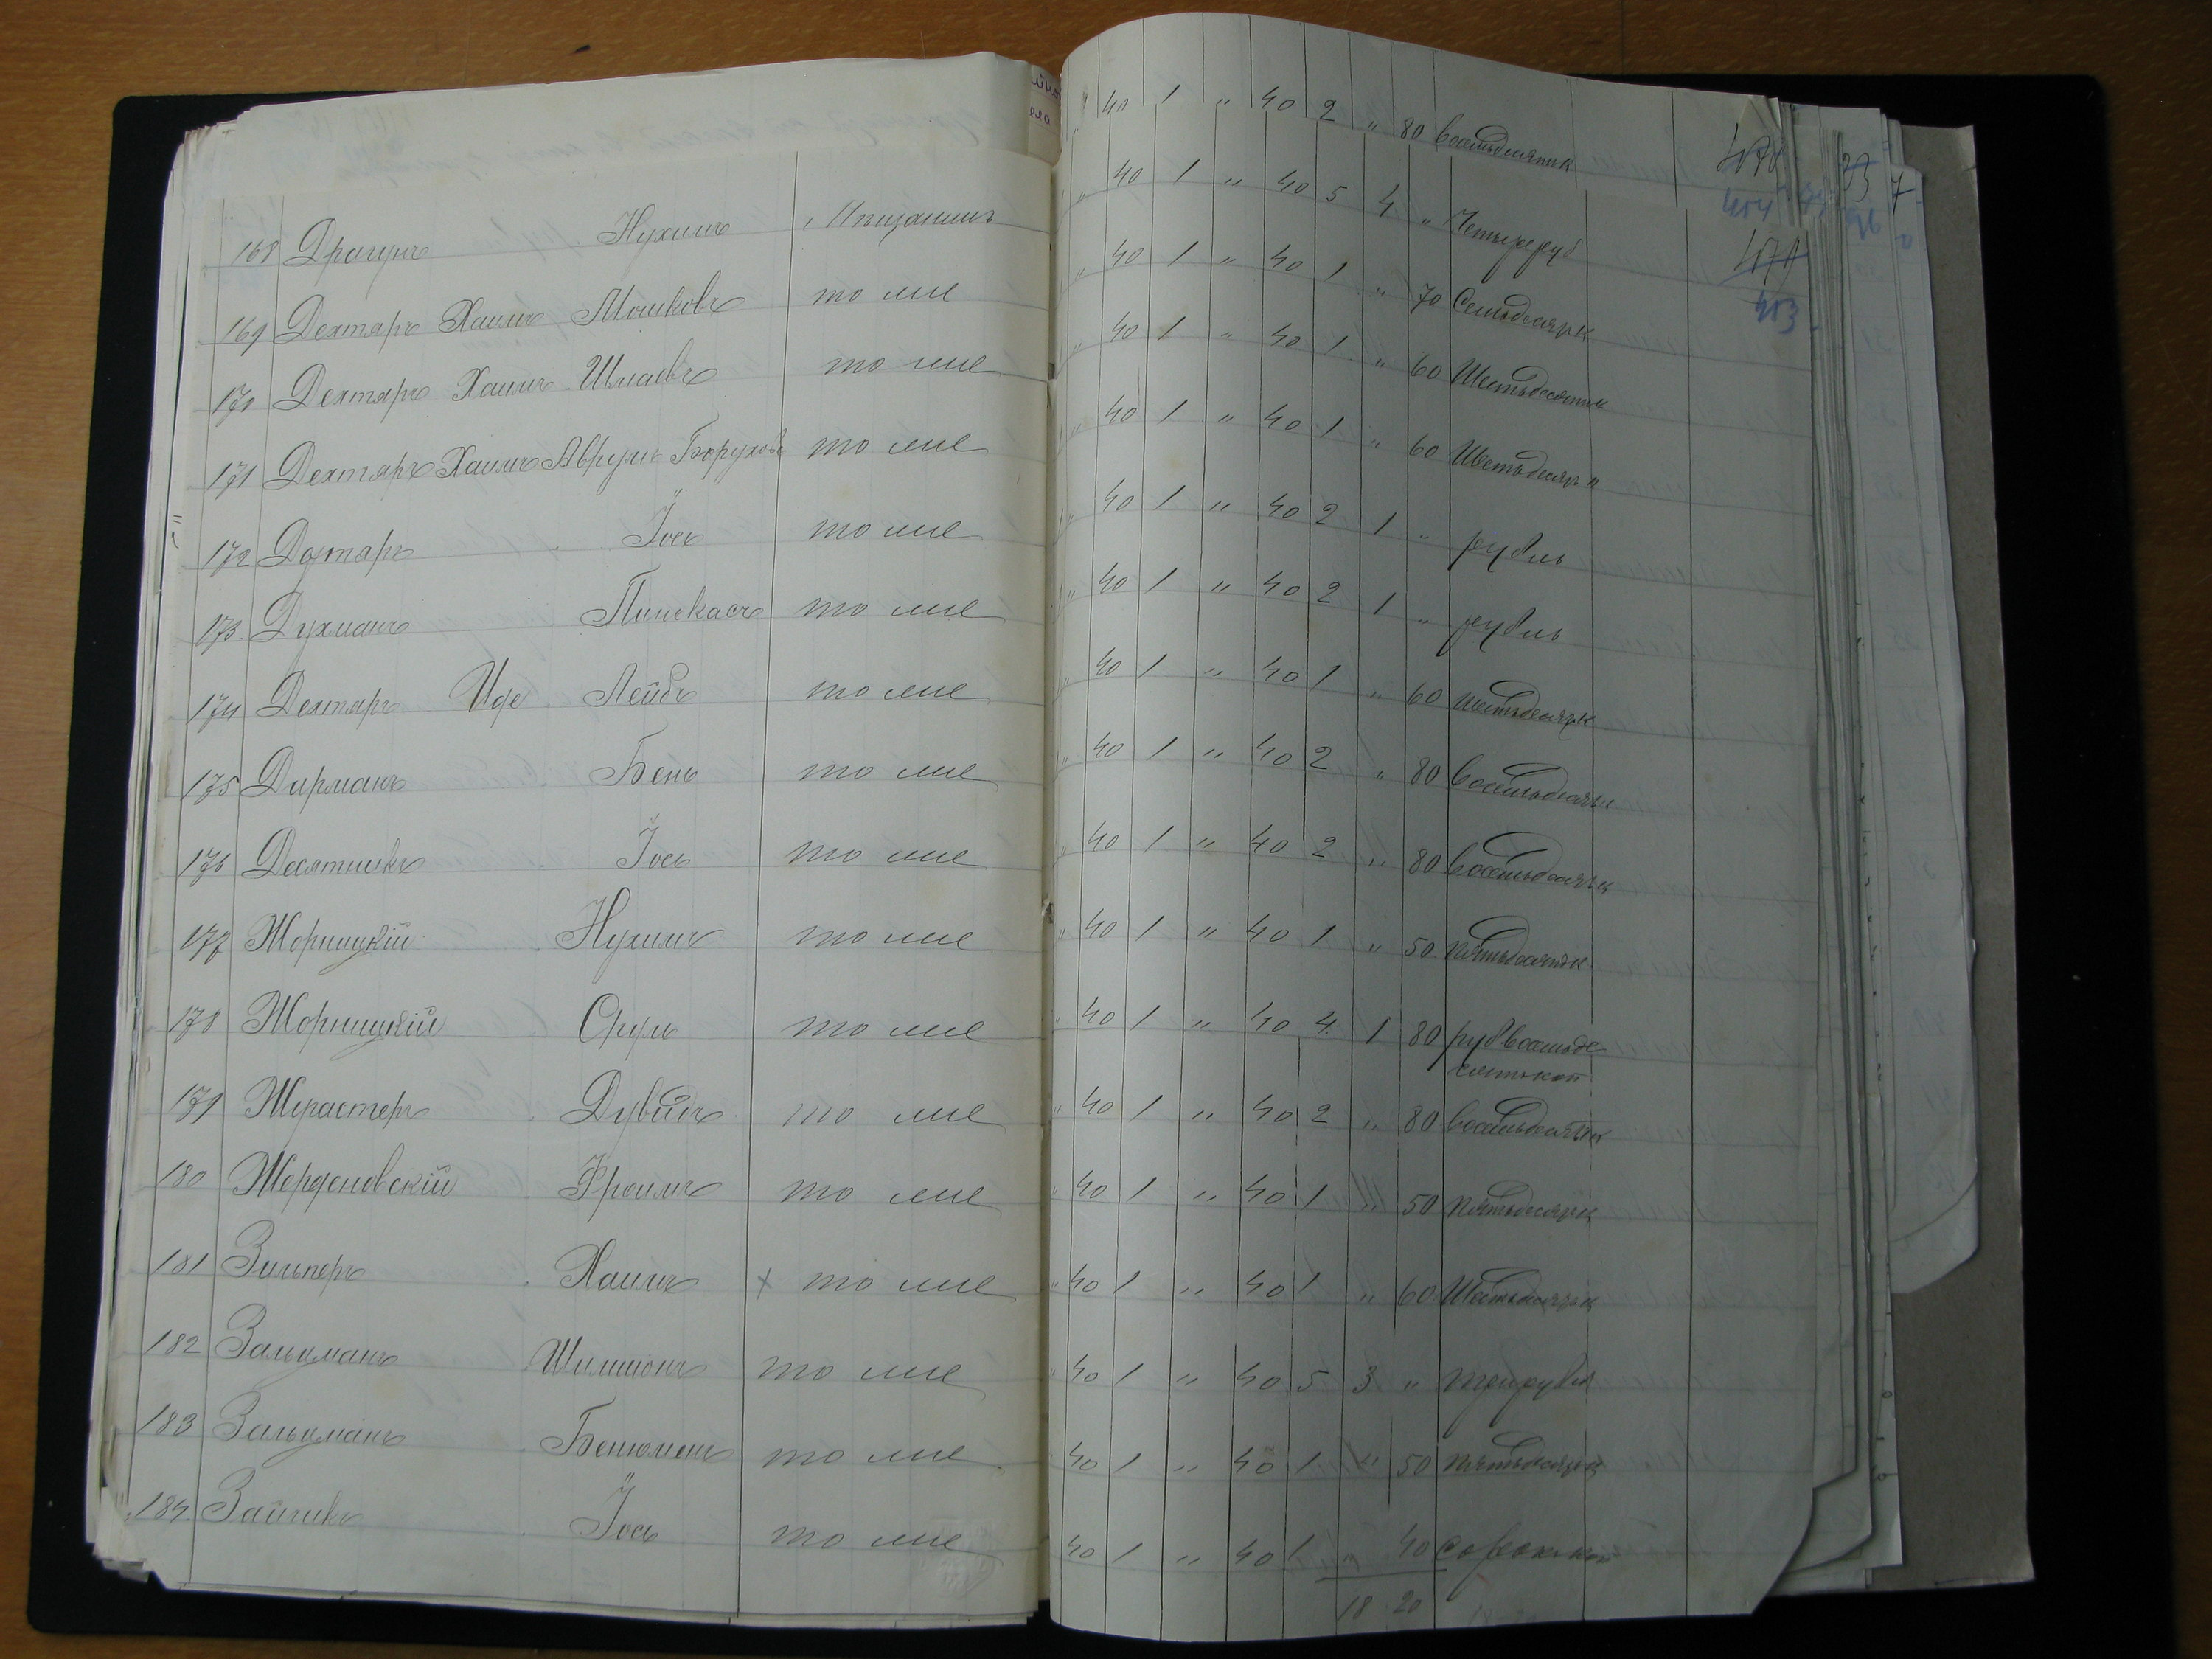 168 Драгунъ Нухимъ Мѣщанинъ
169 Дехтяръ Хаимъ Мошковъ то же
170 Дехтяръ Хаимъ Шмаевъ то же
171 Дехтяръ Хаимъ Аврумъ Боруховъ то же
172 Дохтаръ Іось то же
173 Духманъ Пинскасъ то же
174 Дехтяръ Иде Лейбъ то же
175 Дирманъ Бень то же
176 Десятникъ Іось то же
177 Жорницкій Нухимъ то же
178 Жорницкій Срулъ то же
179 Жерастеръ Дувидъ то же
180 Жорденовскій Фроимъ то же
181 Зильперъ Хаимъ х то же
182 Зальцманъ Шимшонъ то же
183 Зальцманъ Бенюменъ то же
184 Зайчикъ Іось то же
" 40 1 " 40 2 " 80 восемьдесятъ к
" 40 1 " 40 5 4 " Четыре руб
" 40 1 " 40 1 " 70 Семьдесятъ к
" 40 1 " 40 1 " 60 Шестьдесятъ к
" 40 1 " 40 1 " 60 Шестьдесятъ "
" 40 1 " 40 2 1 " рубль
" 40 1 " 40 2 1 " рубль
" 40 1 " 40 1 " 60 Шестьдесятъ к
" 40 1 " 40 2 " 80 восемьдесятъ к
" 40 1 " 40 2 " 80 восемьдесятъ к
" 40 1 " 40 1 " 50 пятьдесятъ к
" 40 1 " 40 4 1 80 руб восемьде
сятъ коп
" 40 1 " 40 2 " 80 восемьдесятъ к
" 40 1 " 40 1 " 50 пятьдесятъ к
" 40 1 " 40 1 " 60 Шестьдесятъ к
" 40 1 " 40 5 3 " три рубля
" 40 1 " 40 1 " 50 пятьдесятъ к
" 40 1 " 40 1 " 40 сорокъ коп
18 20
403